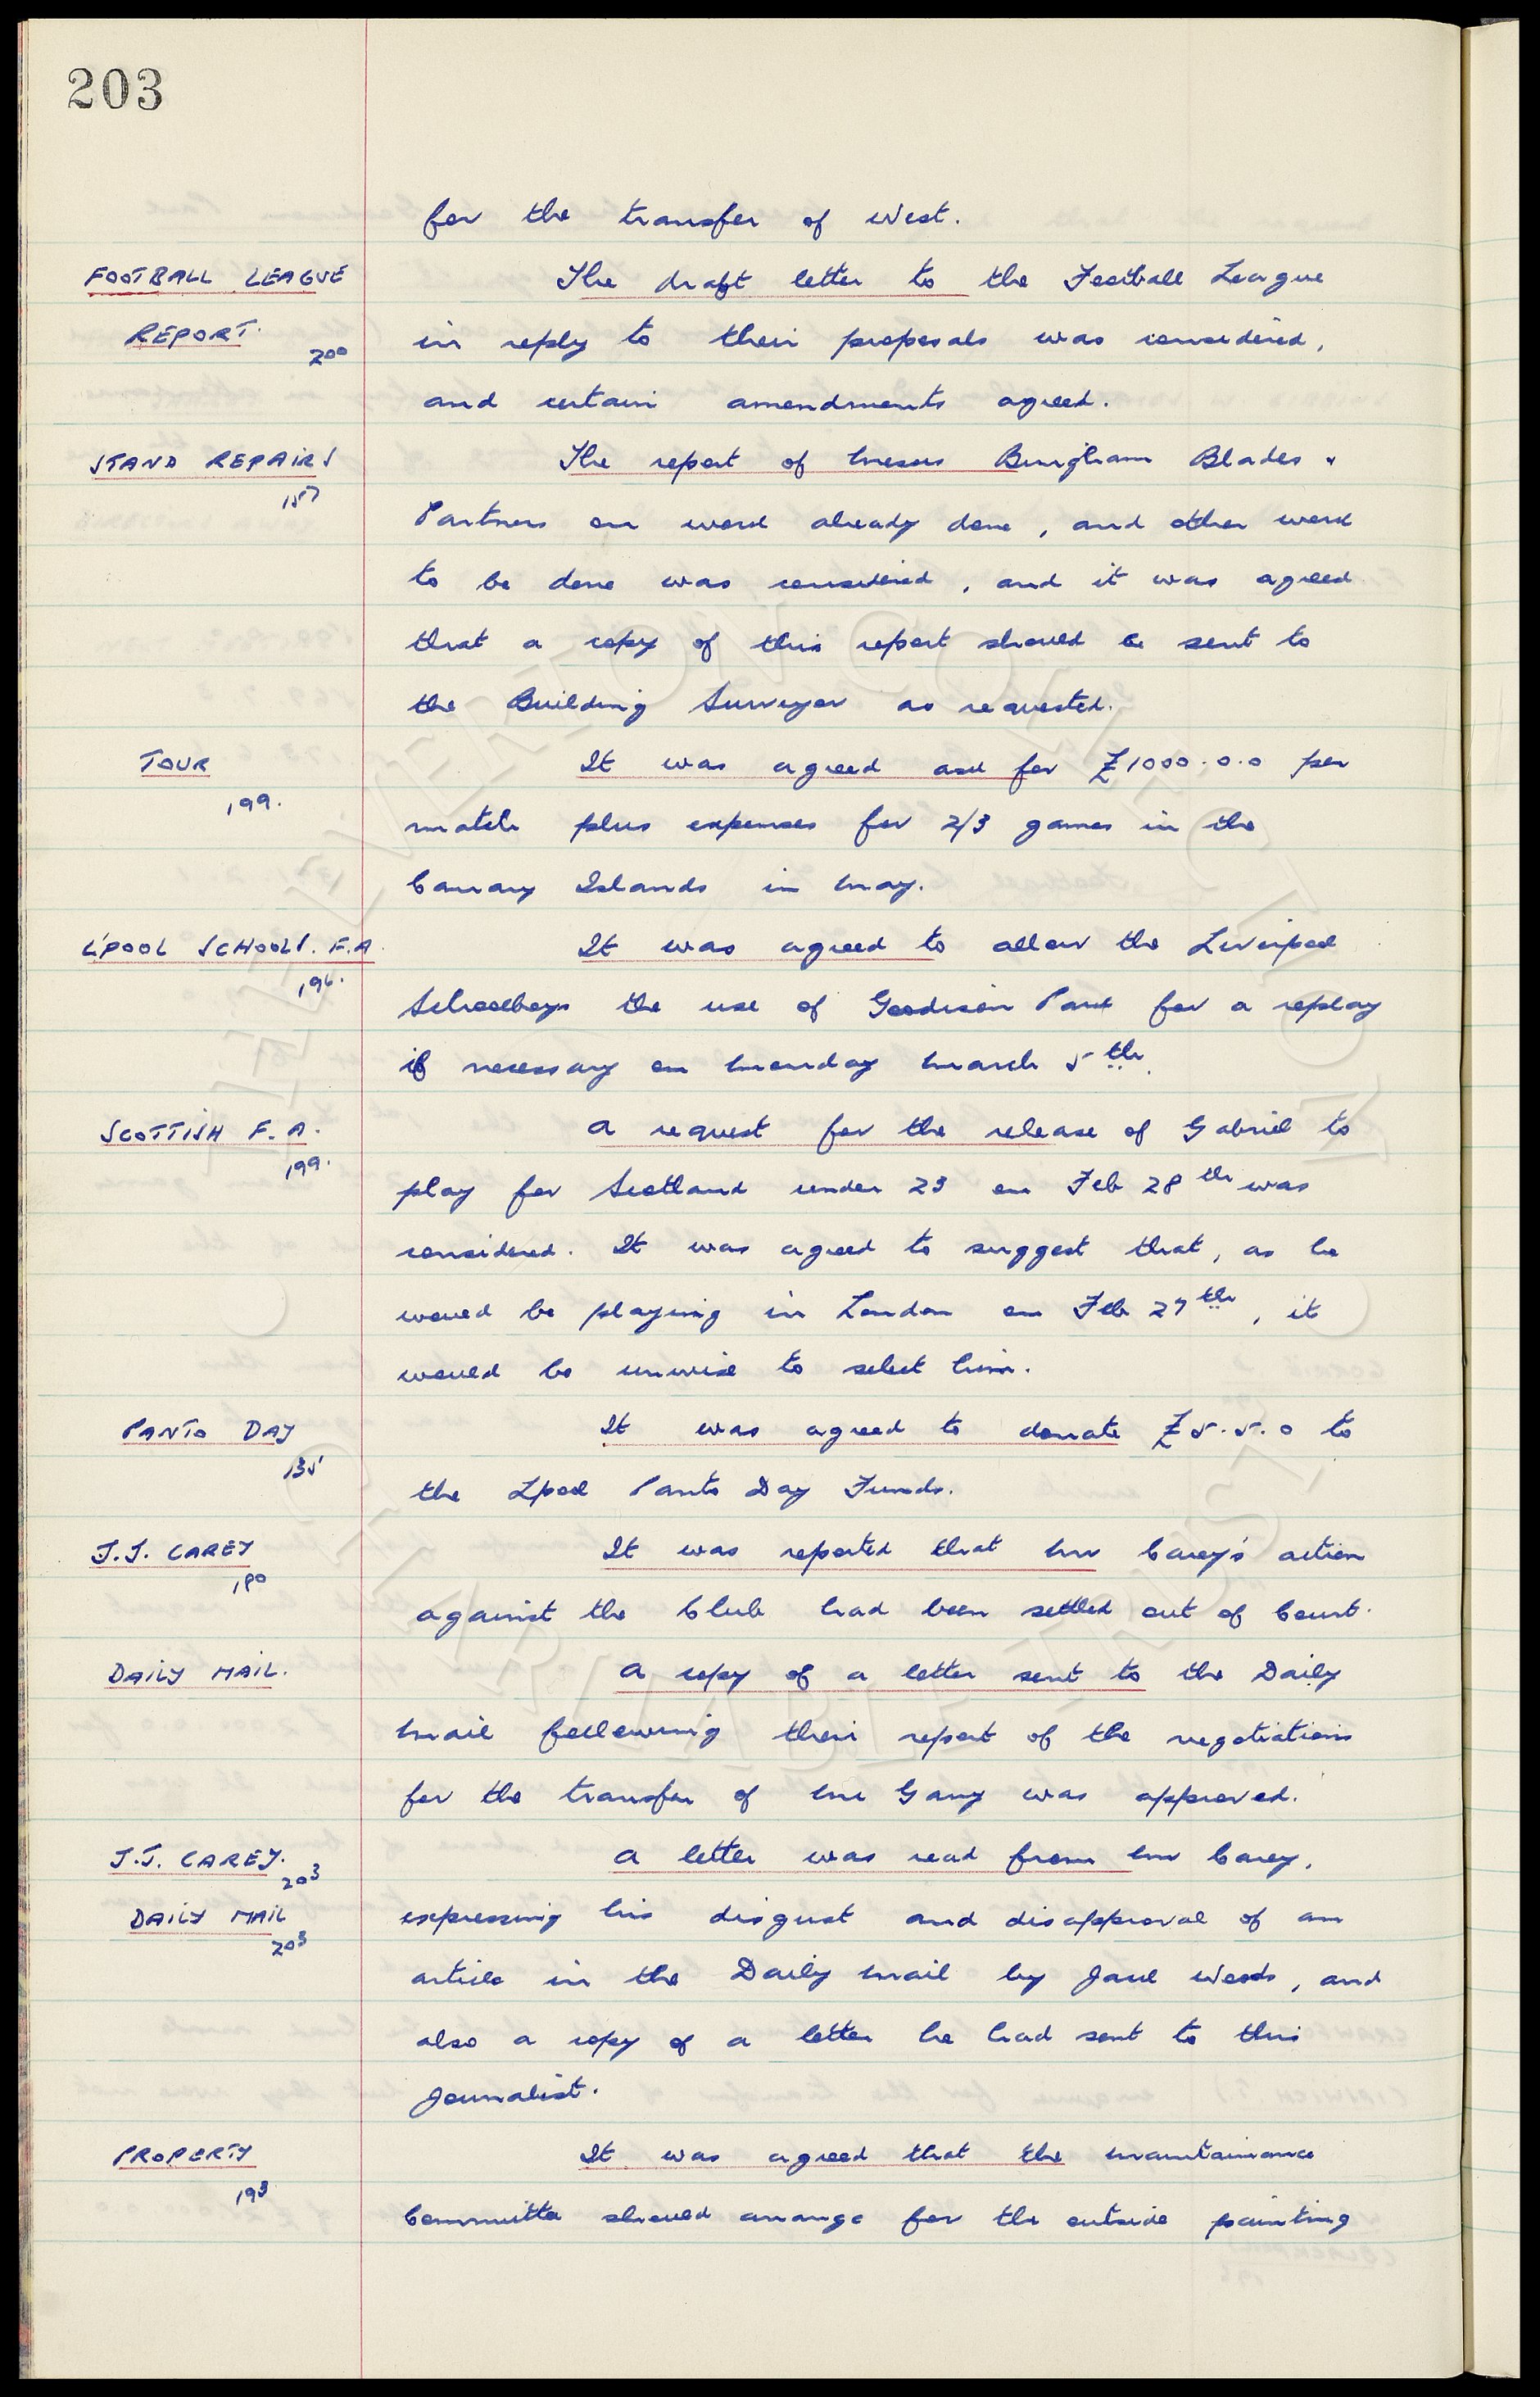 203
for the transfer of West.
FOOTBALL LEAGUE The draft letter to the Football League
REPORT. 200 in reply to their proposals was considered,
and certain amendments agreed.
STAND REPAIRS The report of Messrs Bingham Blades &
157 Partners on work already done, and other work
to be done was considered, and it was agreed
that a copy of this report should be sent to
the Building Surveyor as requested.
TOUR It was agreed ask for £1000.0.0 per
199. match plus expenses for 2/3 games in the
Canary Islands in May.
L'POOL SCHOOLS. F.A. It was agreed to allow the Liverpool
196. Schoolboys the use of Goodison Park for a replay
if necessary on Monday March 5th.
SCOTTISH F.A. A request for the release of Gabriel to
199. play for Scotland under 23 on Feb 28th was
considered. It was agreed to suggest that, as he
would be playing in London on Feb 27th, it
would be unwise to select him.
PANTO DAY It was agreed to donate £5.5.0 to
135 the Lpool Panto Day Funds.
J.J. CAREY It was reported that Mr Carey's action
180 against the Club had been settled out of Court.
DAILY MAIL. A copy of a letter sent to the Daily
Mail following their report of the negotiations
for the transfer of Mr Garry was approved.
J.J. CAREY. 203 A letter was read from Mr Carey,
DAILY MAIL 203 expressing his disgust and disapproval of an
article in the Daily Mail by Jack Woods, and
also a copy of a letter he had sent to this
Journalist.
PROPERTY It was agreed that the Maintainance
193 Committee should arrange for the outside painting